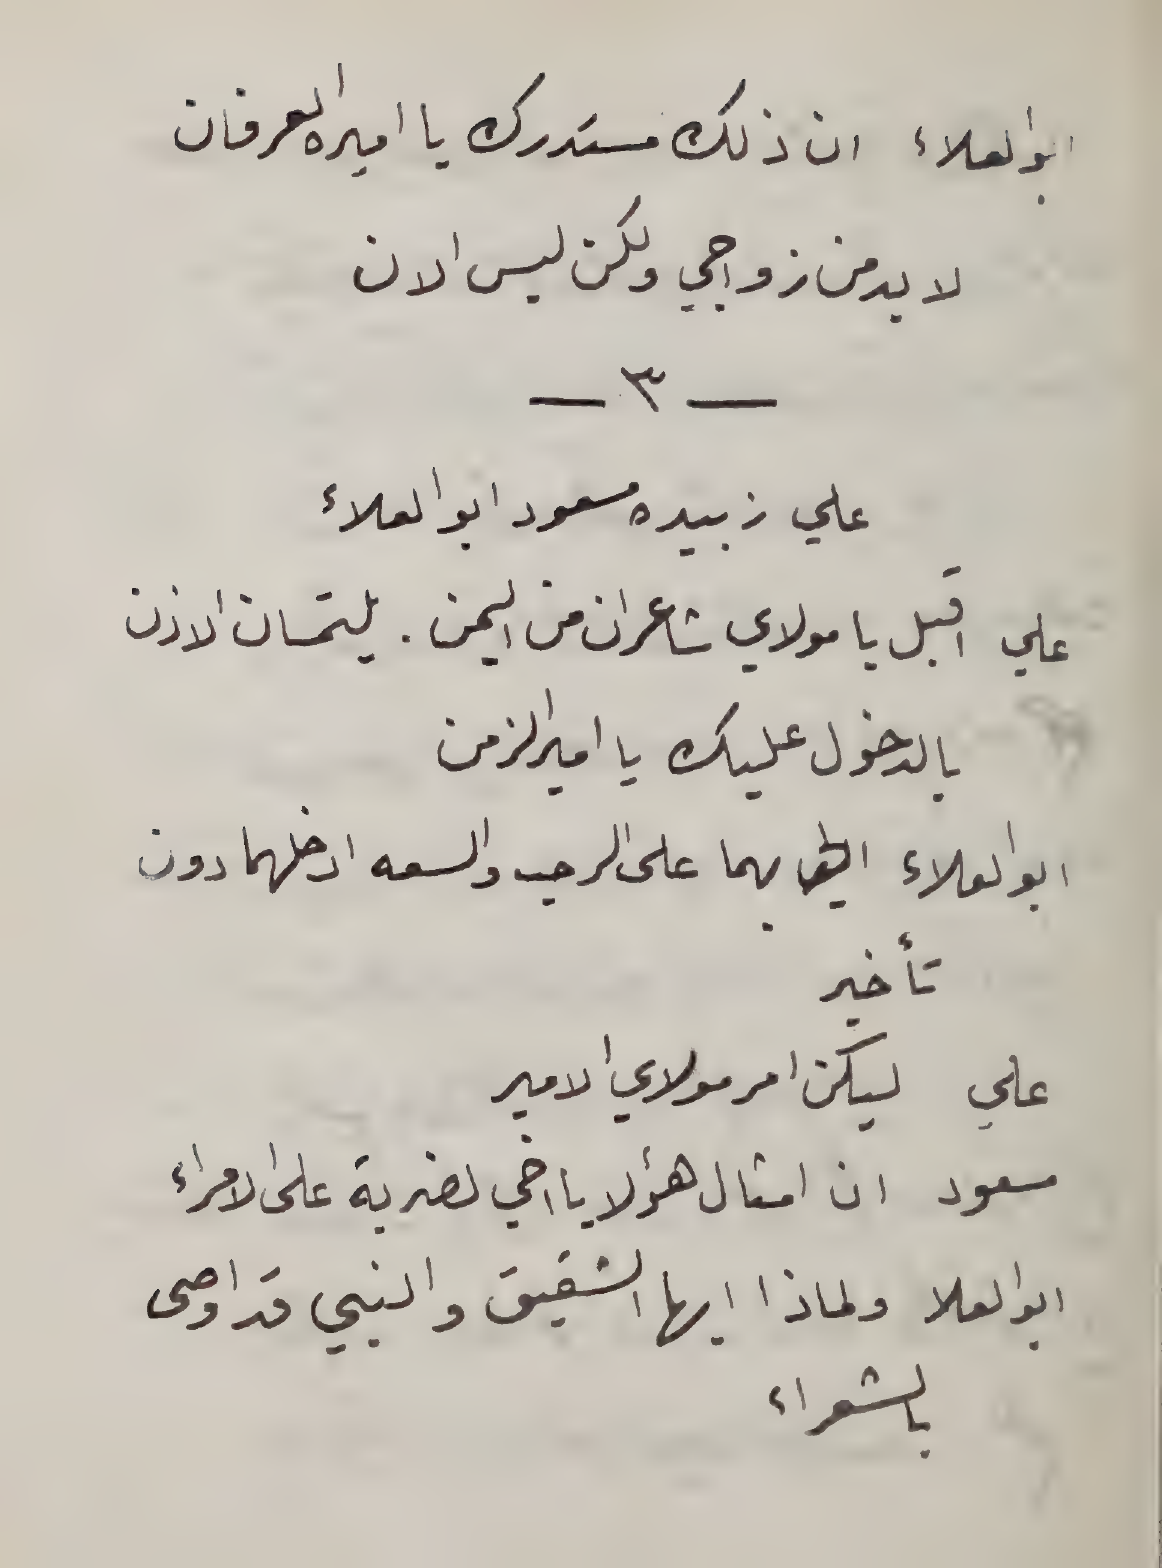 ابوالعلاء ان ذلك مستدرك يا اميره العرفان
لا بد من زواجي ولكن ليس الان
— ٣ —
علي زبيده مسعود ابوالعلاء
علي اقبل يا مولاي شاعران من اليمن . يلتمسان الاذن
بالدخول عليك يا امير الزمن
ابوالعلاء بهما على الرحب والسعه ادخلهما دون
تأخير
علي ليكن امر مولاي الامير
مسعود ان امثال هؤلا يا اخي لضريبة على الامراء
ابوالعلا ولماذا ايها الشقيق والنبي قد اوصى
بالشعراء